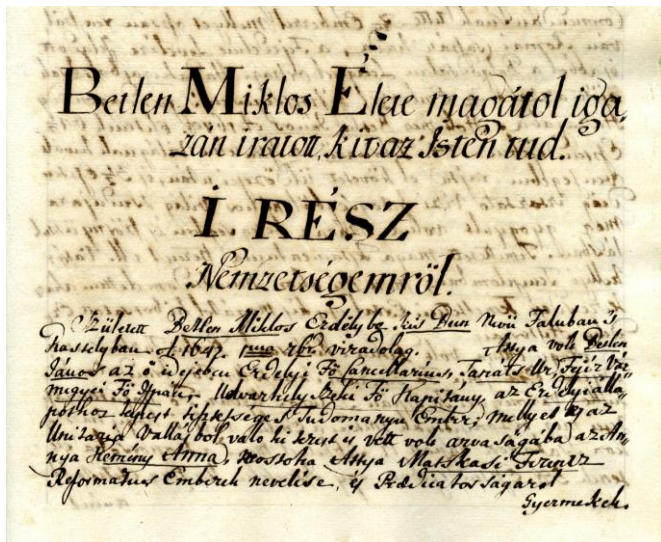 Betlen Miklos Élete magátol iga,
zán iratott, kit az Isten tud.
I. RÉSZ
Nemzetségemröl.
Született Betlen Miklos Erdélybe kis Bun Nevü Faluban 's
Kastélyban 1642. viradolag. Attya volt Betlen
János az ö idejebeli Erdelyi Fö Cancellarius,
megyei Fö Ispán, Udvarhely Széki Fö Kapitány, az Erdelyi álla,
pothoz képest Tudomanyu Ember, melyet az
Unitaria Vallasbol valo ki és vett volt arvaságába az An,
nya Kemény Anna, Mostoha Attya Matskasi Ferentz
Reformatus Emberek nevelése, és Prædicatorságárol
Gyermekek.